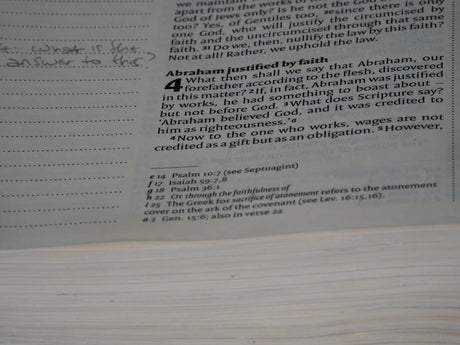 we maintain
apart from the works of
God of Jews only? Is he not the God
too? Yes, of Gentiles too, ³⁰since there is only
one God, who will justify the circumcised by
faith and the uncircumcised through that same
faith. ³¹Do we, then, nullify the law by this faith?
Not at all! Rather, we uphold the law.
What is the
answer to this?
Abraham justified by faith
4 What then shall we say that Abraham, our
forefather according to the flesh, discovered
in this matter? ²If, in fact, Abraham was justified
by works, he had something to boast about –
but not before God. ³What does Scripture say?
'Abraham believed God, and it was credited to
him as righteousness.'a
⁴Now to the one who works, wages are not
credited as a gift but as an obligation. ⁵However,
e 14 Psalm 10:7 (see Septuagint)
f 17 Isaiah 59:7,8
g 18 Psalm 36:1
h 22 Or through the faithfulness of
i 25 The Greek for sacrifice of atonement refers to the atonement
cover on the ark of the covenant (see Lev. 16:15,16).
a 3 Gen. 15:6; also in verse 22